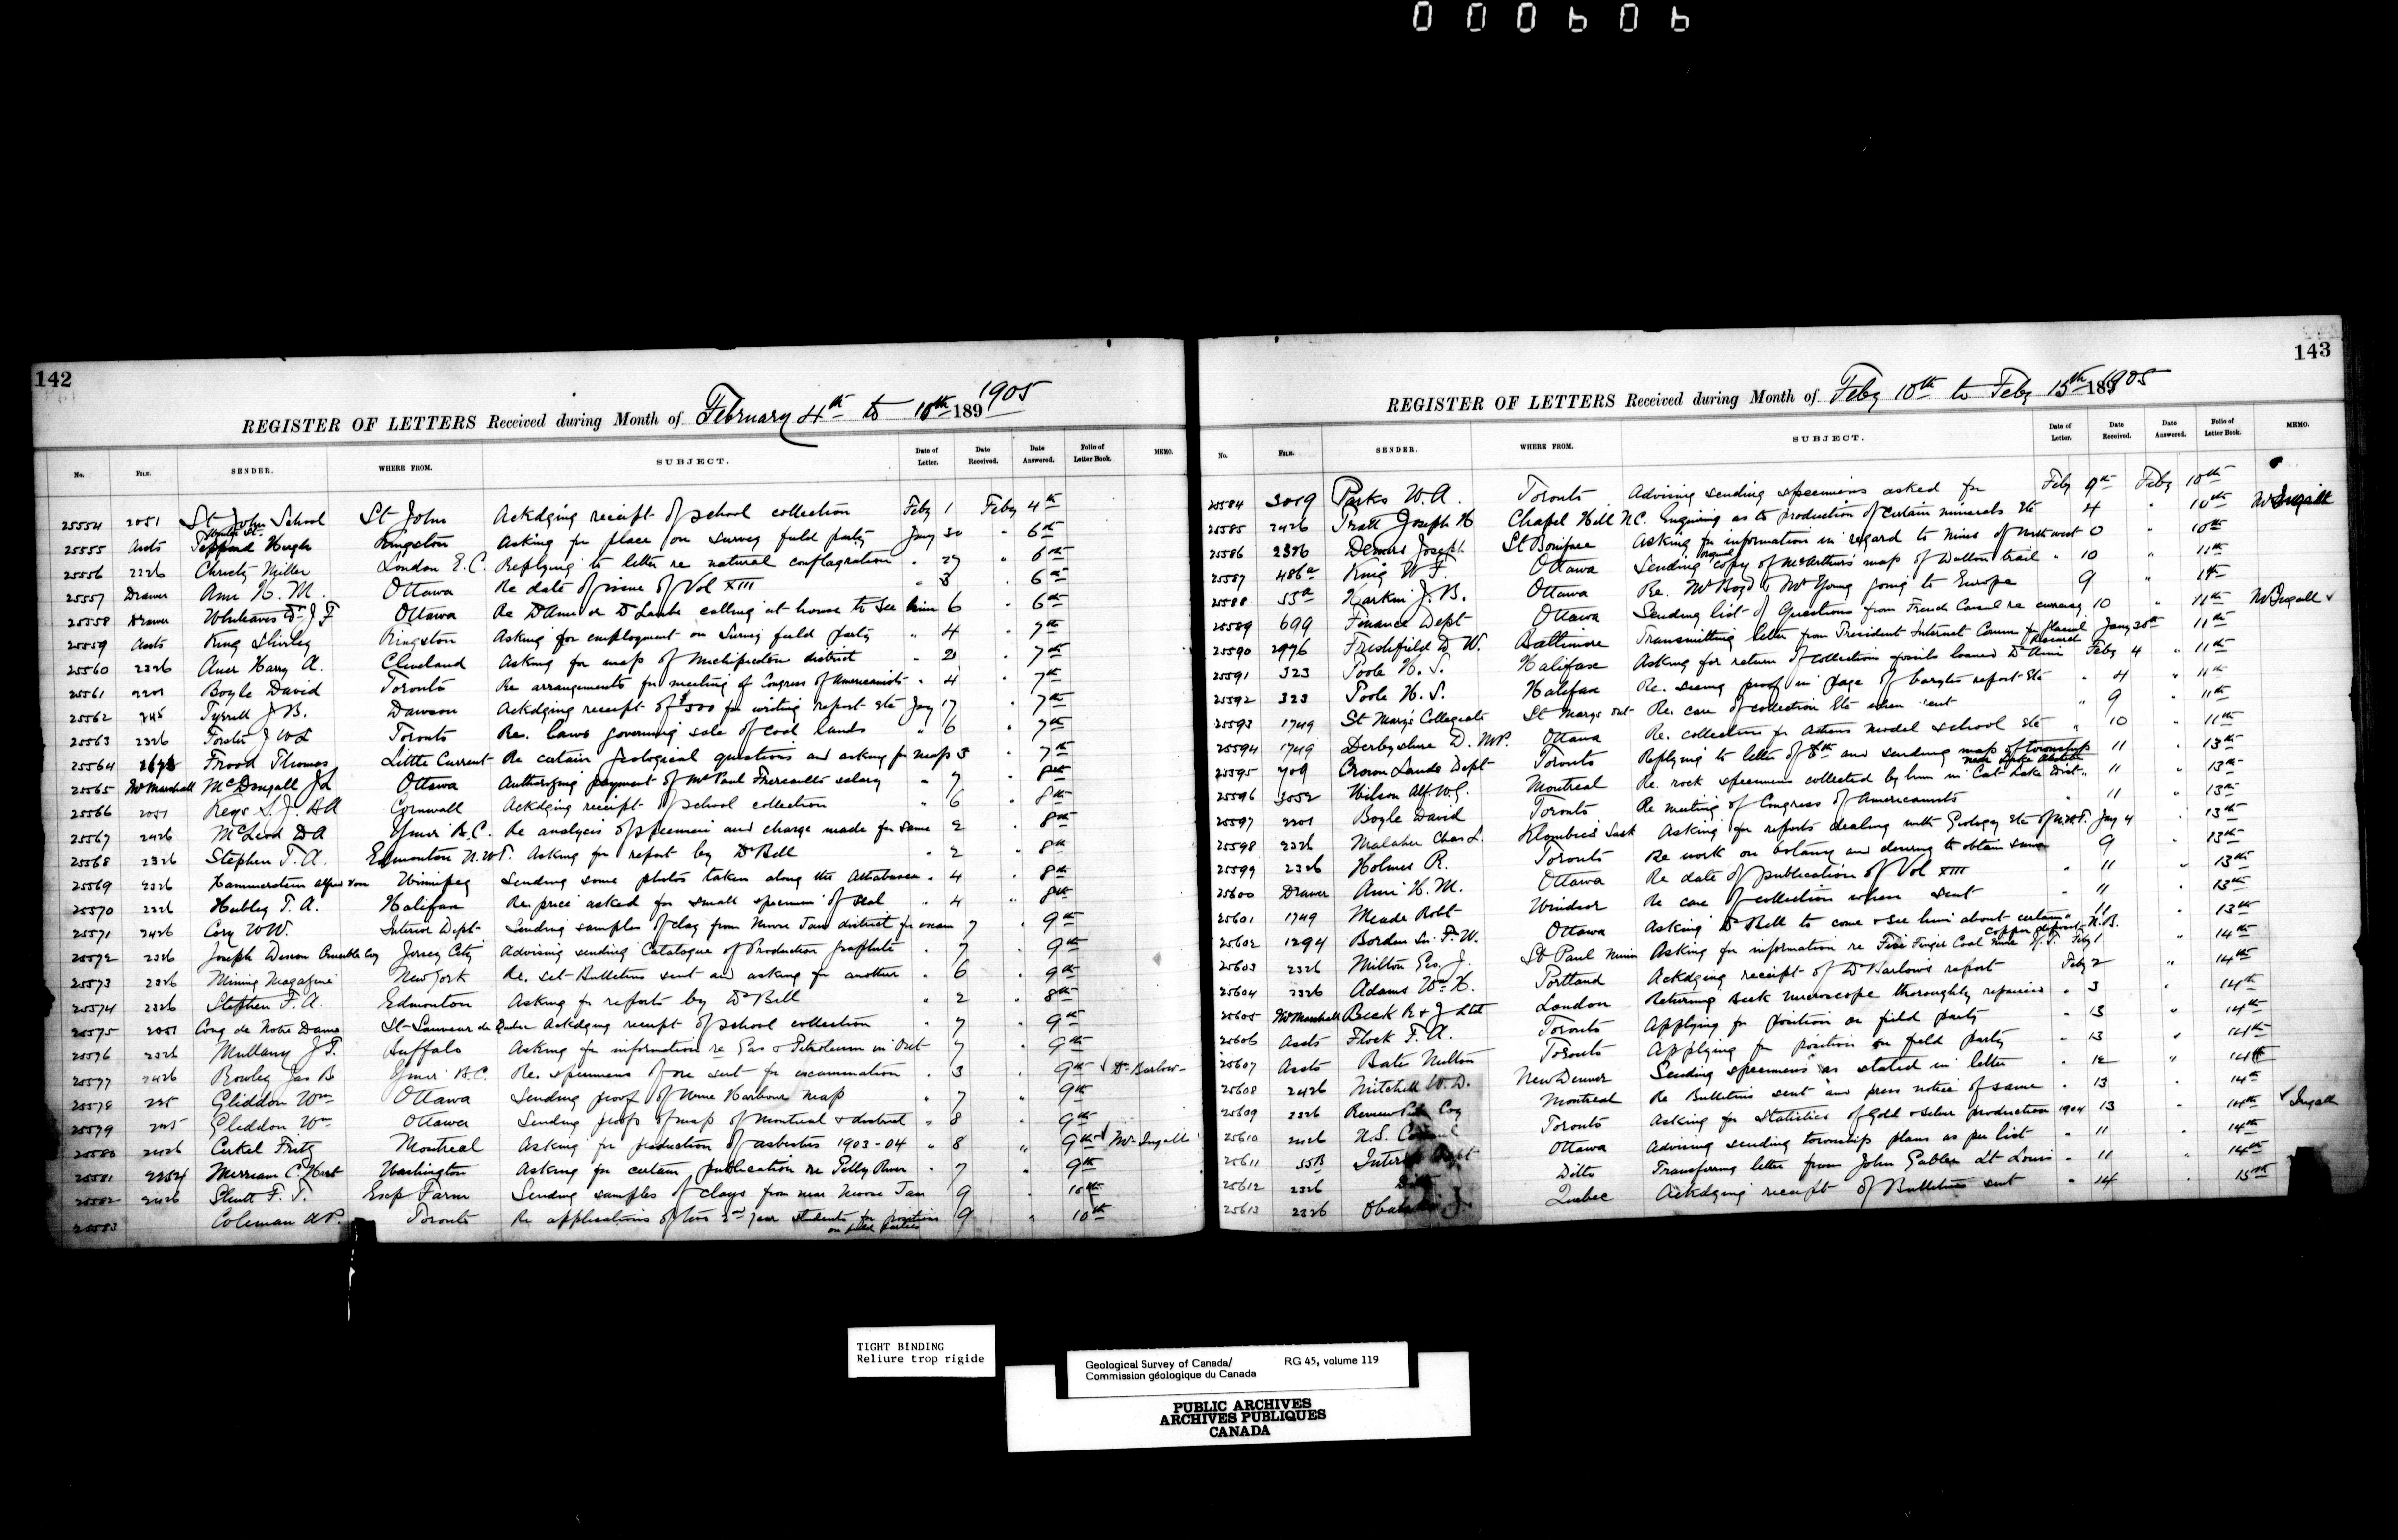 000606
142
REGISTER OF LETTERS Received during Month of February 4th to 10th 1891905
No. FILE. SENDER. WHERE FROM. SUBJECT. Date of Letter. Date Received. Date Answered. Folio of Letter Book. MEMO.
25554 2051 St John School St John Ackdging receipt of school collection Feby 1 Feby 4th
25555 Assts Hugh Kingston Asking for place on survey field party Jany 30 " 6th
25556 2326 Christy Miller London E.C. Replying to letter re natural conflagration " 27 " 6th
25557 Drawer Ami H. M. Ottawa Re date of issue of Vol XIII " 3 " 6th
25558 Drawer Whiteaves Dr J F Ottawa Re Dr Ami or Dr Lambe calling at house to see him 6 " 6th
25559 Assts King Shirley Kingston Asking for employment on Survey field party " 4 " 7th
25560 2326 Auer Harry A. Cleveland Asking for map of Michipicoten district " 2 " 7th
25561 2201 Boyle David Toronto Re arrangements for meeting of Congress of Americanists " 4 " 7th
25562 Tyrrell J. B. Dawson Ackdging receipt of $500 for writing report etc Jany 17 " 7th
25563 2326 Forster J W L Toronto Re. laws governing sale of coal lands " 6 " 7th
25564 Frood Thomas Little Current Re certain geological questions and asking for maps 3 " 7th
25565 Mr Marshall McDougall J L Ottawa Authorizing payment of Mr Paul salary " 7 " 8th
25566 2051 Keys S. J. Cornwall Ackdging receipt of school collection " 6 " 8th
25567 2426 McLeod D A Ymir B.C. Re analysis of specimen and charge made for same 2 " 8th
25568 2326 Stephen T. A. Edmonton N.W.T. Asking for report by Dr Bell " 2 " 8th
25569 2326 Hammerstein Alfred von Winnipeg Sending some photos taken along the Athabasca " 4 " 8th
25570 2326 Hubley T. A. Halifax Re price asked for small specimen of seal " 4 " 8th
25571 2426 Cory W W. Interior Dept Sending samples of clay from Moose Jaw district for exam 7 " 9th
25572 2326 Joseph Dixon Crucible Coy Jersey City Advising sending Catalogue of Production graphite " 7 " 9th
25573 2326 Mining Magazine New York Re. set Bulletins sent and asking for another " 6 " 9th
25574 2326 Stephen F. A. Edmonton Asking for reports by Dr Bell " 2 " 8th
25575 2051 Cong de Notre Dame St Sauveur de Quebec Ackdging receipt of school collection " 7 " 9th
25576 2326 Mullany J. T. Buffalo Asking for information re Gas & Petroleum in Ont " 7 " 9th
25577 2426 Rowley Jas B Ymir B.C. Re. specimens of ore sent for examination " 3 9th Dr Barlow
25578 225 Gliddon Wm Ottawa Sending proof of Wine Harbour Map " 7 " 9th
25579 225 Gliddon Wm Ottawa Sending proof of map of Montreal & district " 8 9th
25580 2426 Cirkel Fritz Montreal Asking for production of asbestos 1903-04 " 8 " 9th Mr Ingall
25581 2254 Merriam C. Hart Washington Asking for certain publication re Pelly River " 7 " 9th
25582 2426 Shutt F. T. Exp Farm Sending samples of clays from near Moose Jaw 9 " 10th
25583 Coleman A P. Toronto Re applications of two 2nd year students for positions on field parties 9 " 10th
143
REGISTER OF LETTERS Received during Month of Feby 10th to Feby 15th 1891905
No. FILE. SENDER. WHERE FROM. SUBJECT. Date of Letter. Date Received. Date Answered. Folio of Letter Book. MEMO.
25584 3019 Parks W. A. Toronto Advising sending specimens asked for Feby 9th Feby 10th
25585 2426 Pratt Joseph H Chapel Hill N.C. Enquiring as to production of certain minerals etc 4 " 10th Mr Ingall
25586 2326 Demers Joseph St Boniface Asking for information in regard to mines of Northwest 10th
25587 486a King W. F. Ottawa Sending original copy of McArthur's map of Dalton trail " 10 " 11th
25588 55a Harkin J. B. Ottawa Re. Mr Boyd & Mr Young going to Europe 9 " 11th
25589 699 Finance Dept Ottawa Sending list of Questions from French Consul re currency 10 " 11th Mr Ingall
25590 2976 Freshfield D. W. Baltimore Transmitting letter from President Internat Comm for Glacial Research Jany 30th 11th
25591 323 Poole H. S. Halifax Asking for return of collections fossils loaned Dr Ami Feby 4 " 11th
25592 323 Poole H. S. Halifax Re. seeing proof in page of barytes report etc " 4 " 11th
25593 1749 St Marys Collegiate St Marys Ont Re. care of collection etc when sent " 9 " 11th
25594 1749 Derbyshire D. M.P. Ottawa Re. collection for Athens model school etc " 10 " 11th
25595 709 Crown Lands Dept Toronto Replying to letter of 8th and sending map of township near Lake Abitibi 11 " 13th
25596 3052 Wilson Alf. W. G. Montreal Re. rock specimens collected by him in Cat Lake Dist. 11 " 13th
25597 2201 Boyle David Toronto Re meeting of Congress of Americanists " 11 " 13th
25598 2326 Malaher Chas L. Sask Asking for reports dealing with Geology etc of N.W.T. Jany 4 " 13th
25599 2326 Holmes R. Toronto Re work on botany and desiring to obtain same 9 " 13th
25600 Drawer Ami H. M. Ottawa Re date of publication of Vol XIII " 11 " 13th
25601 1749 Meade Robt Windsor Re care of collection when sent " 11 " 13th
25602 1294 Borden Sir F. W. Ottawa Asking Dr Bell to come & see him about certain copper deposit N.B. 11 " 13th
25603 2326 Milton Geo. J. St Paul Minn Asking for information re Five Finger Coal mine Y. T. Feby 1 " 14th
25604 2326 Adams Wm H. Portland Ackdging receipt of Dr Barlow's report Feby 2 " 14th
25605 Mr Marshall Beck R & J Ltd London Returning Beck microscope thoroughly repaired " 3 " 14th
25606 Assts Flock F. A. Toronto Applying for position on field party " 13 " 14th
25607 Assts Bates Milton Toronto Applying for position on field party " 13 " 14th
25608 2426 Mitchell W. D. New Denver Sending specimens as stated in letter " 12 " 14th
25609 2326 Review Pub Coy Montreal Re Bulletins sent and press notice of same " 13 " 14th
25610 2426 U.S. Consul Toronto Asking for Statistics of Gold & silver production 1904 13 " 14th Ingall
25611 55B Interior Dept Ottawa Advising sending township plans as per list " 11 " 14th
25612 2326 Ditto Transferring letter from John Gabler St Louis " 11 " 14th
25613 2326 Obalski J. Quebec Ackdging receipt of Bulletins sent " 14 " 15th
TIGHT BINDING
Reliure trop rigide
Geological Survey of Canada/ RG 45, volume 119
Commission géologique du Canada
PUBLIC ARCHIVES
ARCHIVES PUBLIQUES
CANADA